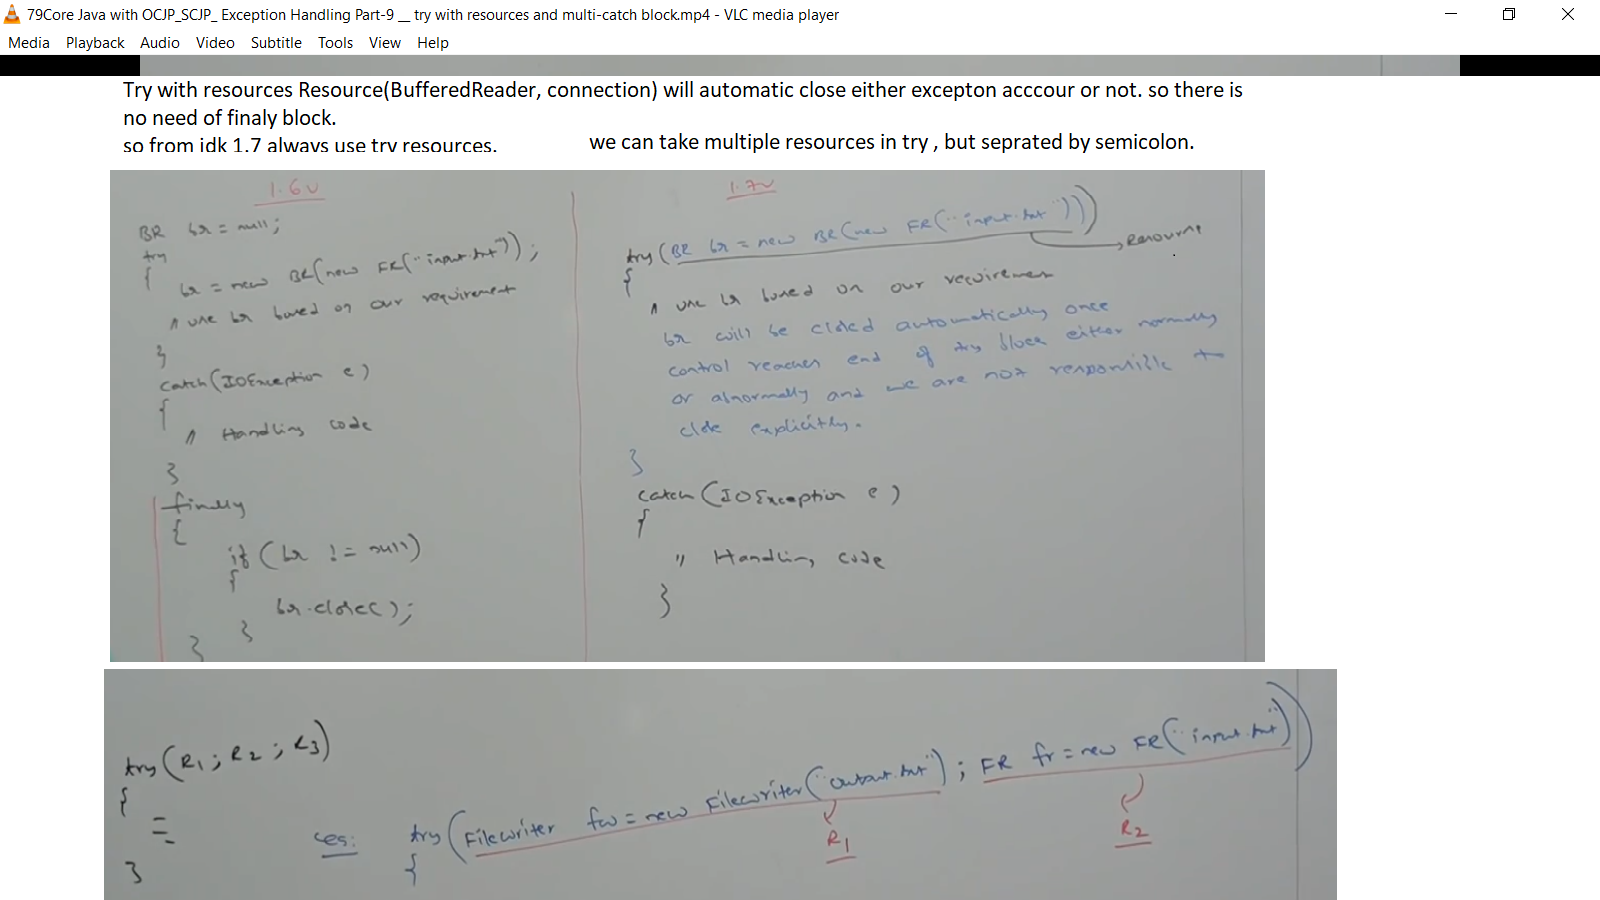 79Core Java with OCJP_SCJP_ Exception Handling Part-9 __ try with resources and multi-catch block.mp4 - VLC media player
Media Playback Audio Video Subtitle Tools View Help
Try with resources Resource(BufferedReader, connection) will automatic close either excepton acccour or not. so there is
no need of finaly block.
so from jdk 1.7 always use try resources.
we can take multiple resources in try , but seprated by semicolon.
1.6v
BR br = null;
try
{
br = new BR(new FR("input.txt"));
// use br based on our requirement
}
catch(IOException e)
{
// Handling code
}
finally
{
if (br != null)
{
br.close();
}
}
1.7v
try(BR br = new BR(new FR("input.txt")))
Resource
{
// use br based on our requirement
br will be closed automatically once
control reaches end of try block either normally
or abnormally and we are not responsible to
close explicitly.
}
catch(IOException e)
{
// Handling code
}
try(R1; R2; R3)
{
}
try(FileWriter fw = new FileWriter("output.txt"); FR fr = new FR("input.txt"))
{
R1
R2